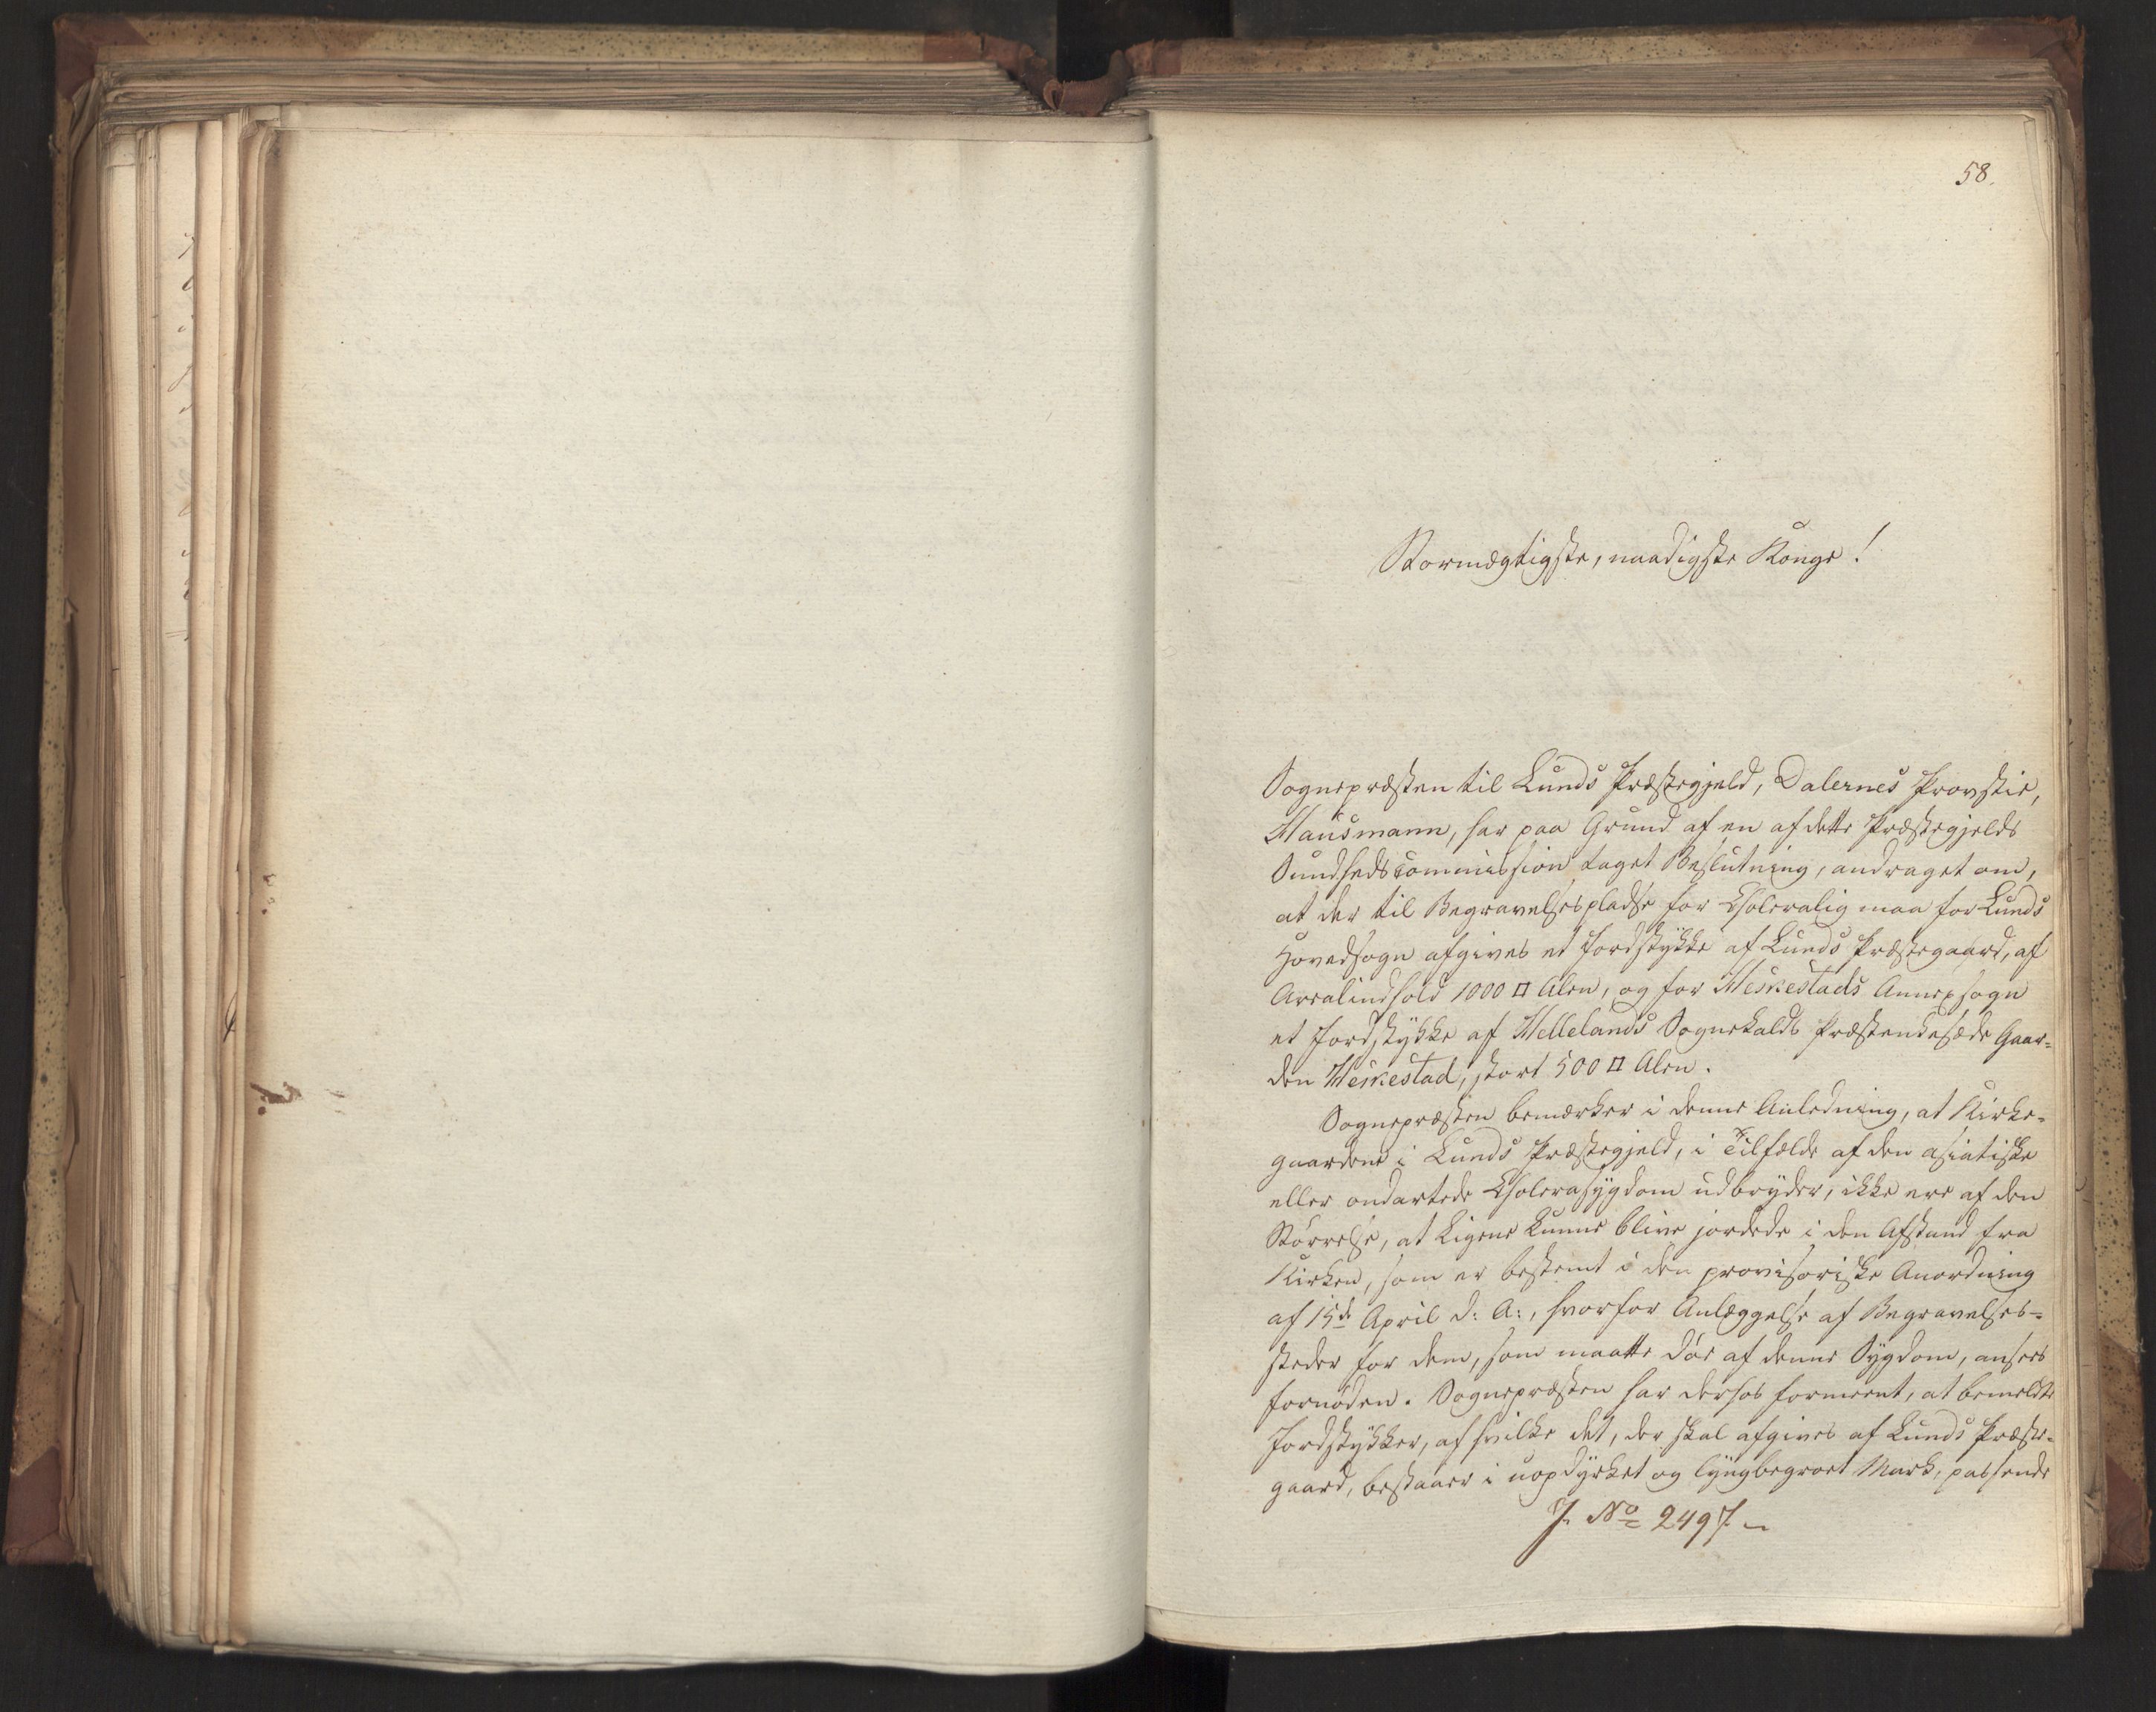 58.
Stormægtigste, naadigste Konge!
Sognepræsten til Lunds Præstegjeld, Dalernes Provstie,
Hausmann, har paa Grund af en af dette Præstegjelds
Sundhedscommission taget Beslutning, andraget om,
at der til Begravelsesplads for Choleralig maa for Lunds
Hovedsogn afgives et Jordstykke af Lunds Præstegaard, af
Arealindhold 1000 □ Alen, og for Heskestads Annexsogn
et Jordstykke af Hellelands Sognekalds Præsteenkesæde Gaar-
den Heskestad, stort 500 □ Alen.
Sognepræsten bemærker i denne Anledning, at Kirke-
gaardene i Lunds Præstegjeld, i Tilfælde af den asiatiske
eller ondartede Cholerasygdom udbryder, ikke ere af den
Størrelse, at Ligene kunne blive jordede i den Afstand fra
Kirken, som er bestemt i den provisoriske Anordning
af 15de April d: A:, hvorfor Anlæggelse af Begravelses-
steder for dem, som maatte døe af denne Sygdom, ansees
fornøden. Sognepræsten har derhos formeent, at bemeldte
Jordstykker, af hvilke det, der skal afgives af Lunds Præste-
gaard, bestaaer i uopdyrket og lyngbegroet Mark, passende
J. No 2497.